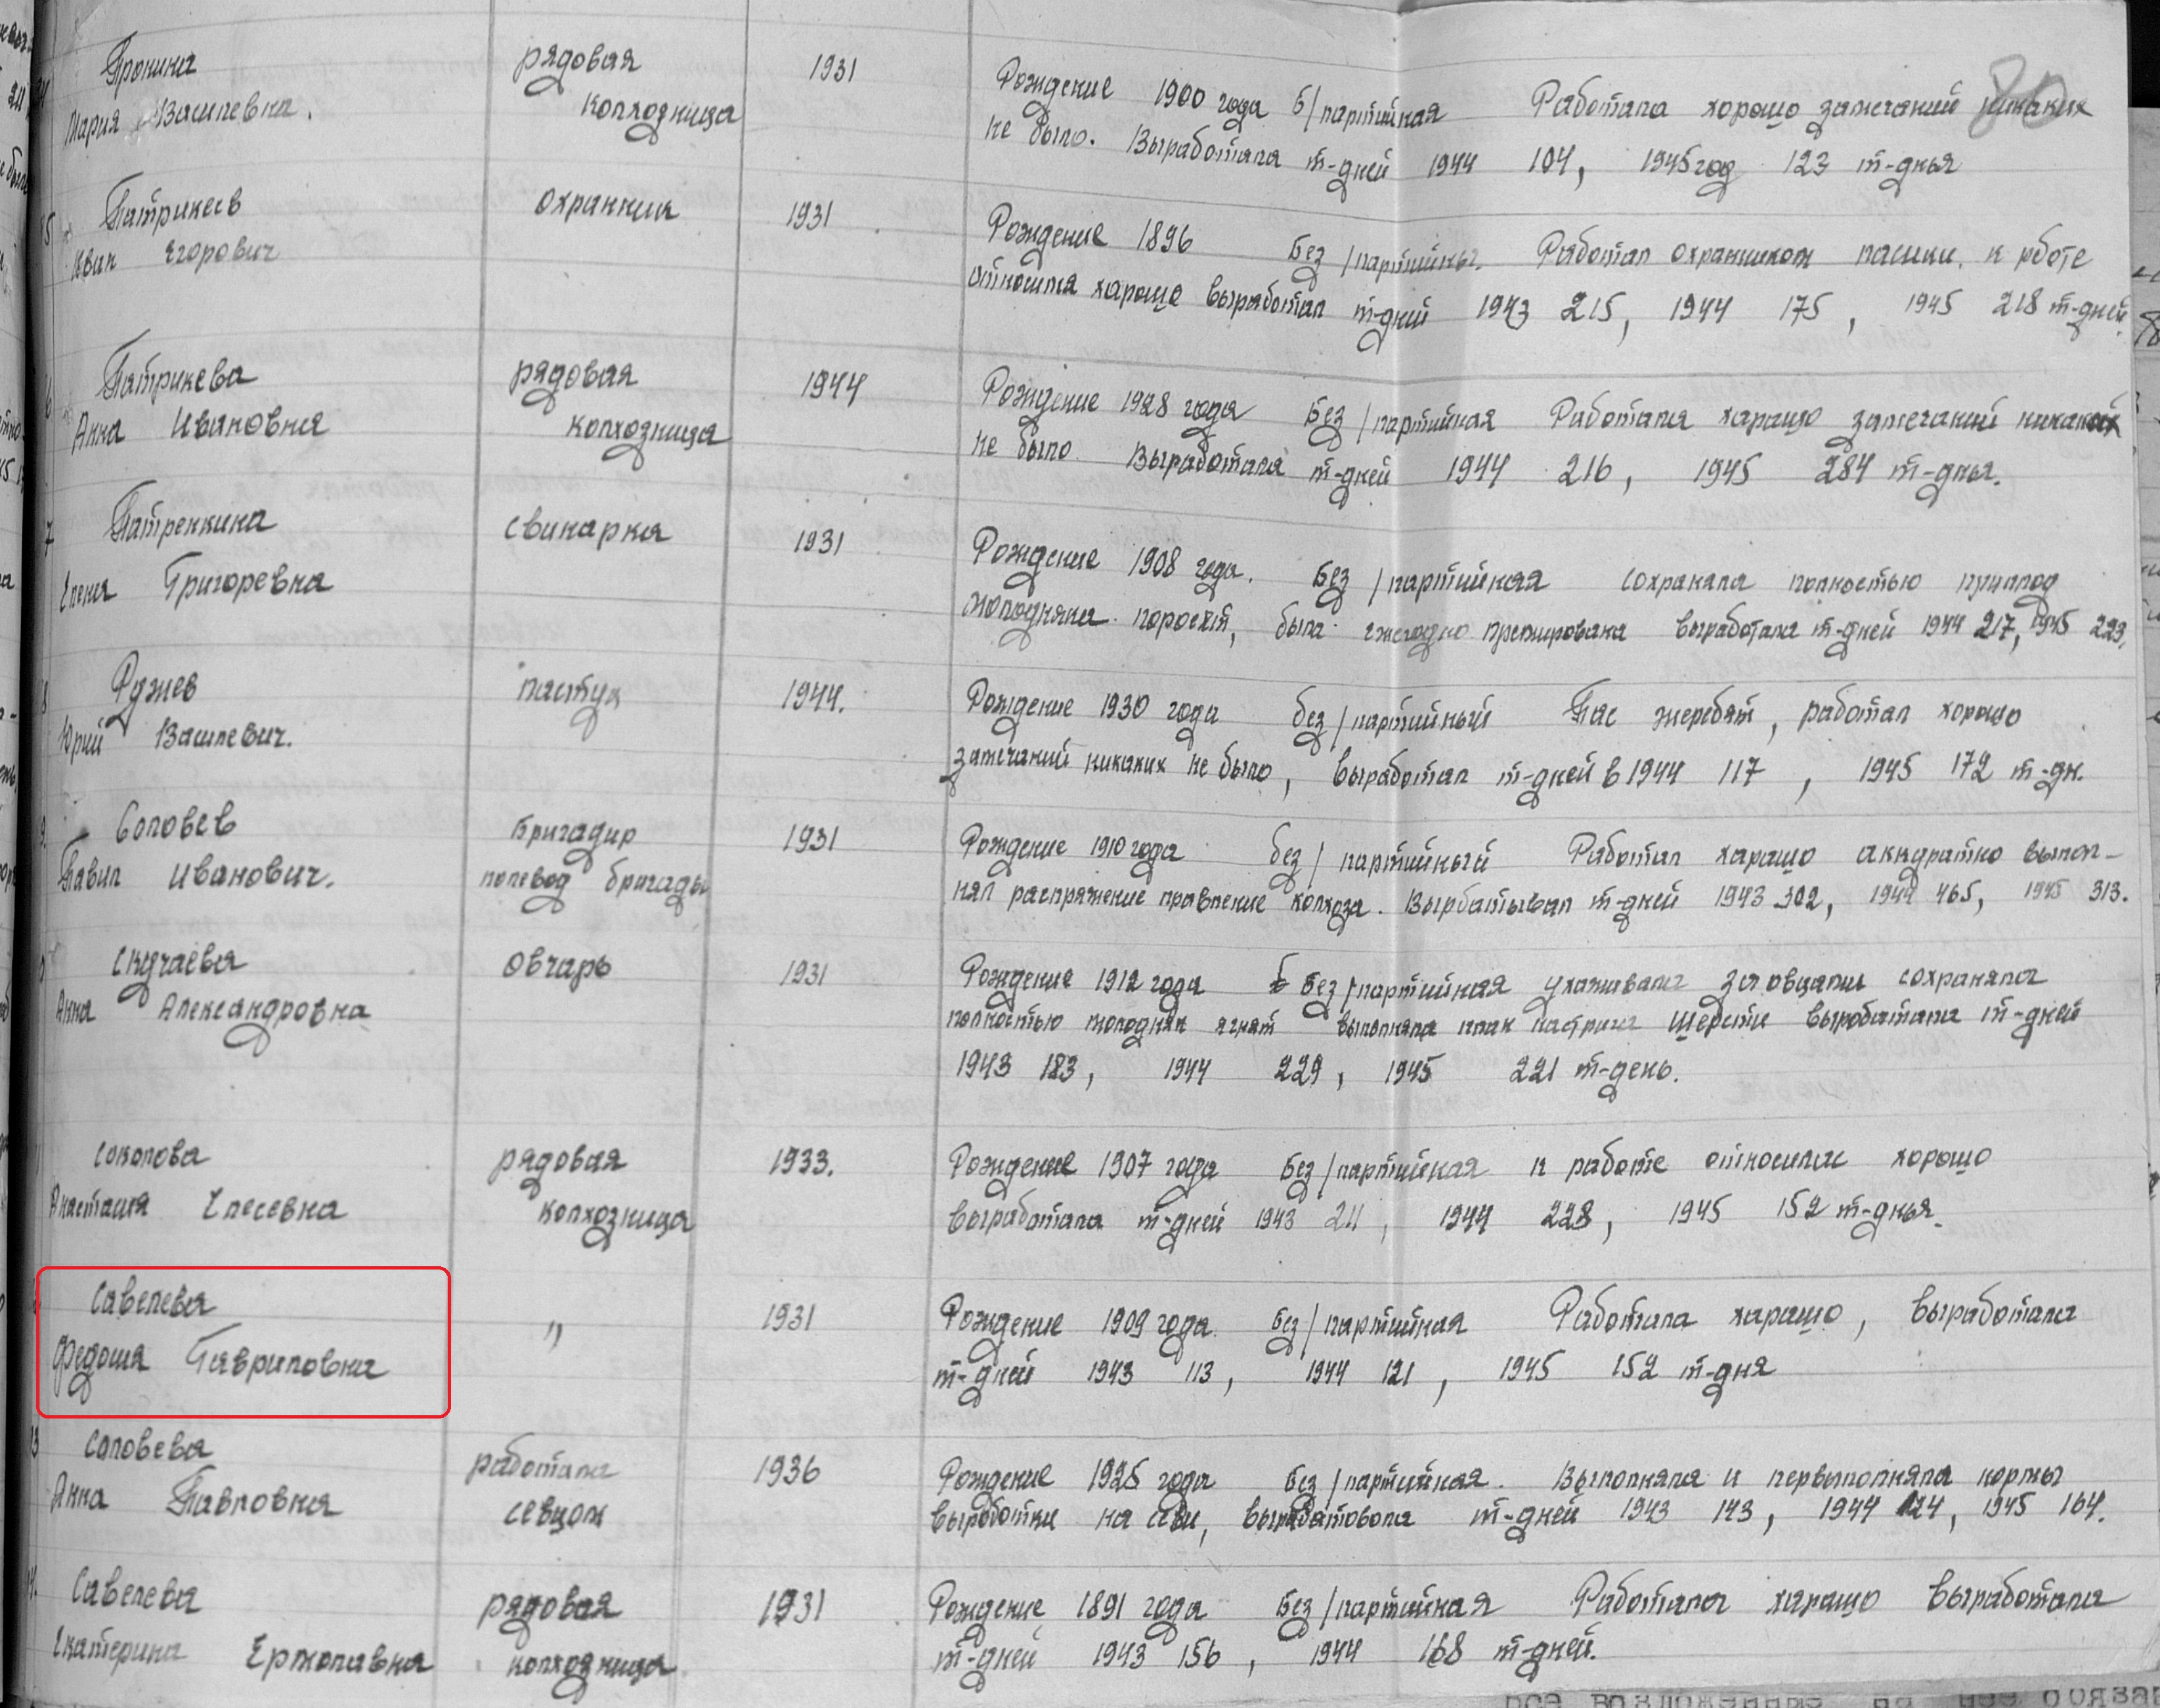 80
Пронина рядовая 1931 Рождение 1900 года Б/партийная Работала хорошо замечаний никаких
Мария Василевна. колхозница не было. Выработала т-дней 1944 104, 1945 год 123 т-дня
Патрикеев охранник 1931 Рождение 1896 Без/партийны. Работал охранником пасики. к рботе
Иван Егорович относился харошо выработал т-дней 1943 215, 1944 175, 1945 218 т-дней.
Патрикева рядовая 1944 Рождение 1928 года Без/партийная Работала харашо замечаний никаких
Анна Ивановна колхозница не было Выработала т-дней 1944 216, 1945 284 т-дня.
Патренкина свинарка 1931 Рождение 1908 года. Без/партийная сохраняла полностью приплод
Елена Григоревна молодняка поросят, была ежегодно премирована выработала т-дней 1944 217, 1945 223.
Рджев пастух 1944. Рождение 1930 года без/партийный Пас жеребят, работал хорошо
Юрий Василевич. замечаний никаких не было, выработал т-дней в 1944 117, 1945 172 т-дн.
Соловев Бригадир 1931 Рождение 1910 года без/партийный Работал харашо аккдратно выпол-
Павил Иванович. полевод бригады нял распряжение правление колхоза. Вырбатывал т-дней 1943 302, 1944 465, 1945 313.
Скдчаева овчарь 1931 Рождение 1912 года Без/партийная ухаживала за овцами сохраняла
Анна Александровна полностью молодняк ягнят выполняла план настрига шерсти выроботала т-дней
1943 183, 1944 229, 1945 221 т-день.
Соколова рядовая 1933. Рождение 1907 года Без/партийная к работе относилас хорошо
Анастасия Елесевна колхозница выработала т-дней 1943 211, 1944 228, 1945 152 т-дня.
Савелева " 1931 Рождение 1909 года Без/партийная Работала харашо, выработала
Федосия Гавриловна т-дней 1943 113, 1944 121, 1945 152 т-дня
Соловева работала 1936 Рождение 1925 года Без/партийная. Выполняла и первыполняла нормы
Анна Павловна севцом выработки на севи, вырабатовала т-дней 1943 143, 1944 124, 1945 164.
Савелева рядовая 1931 Рождение 1891 года Без/партийная Работала харашо выработала
Екатерина Ермолавна колхозница т-дней 1943 156, 1944 168 т-дней.